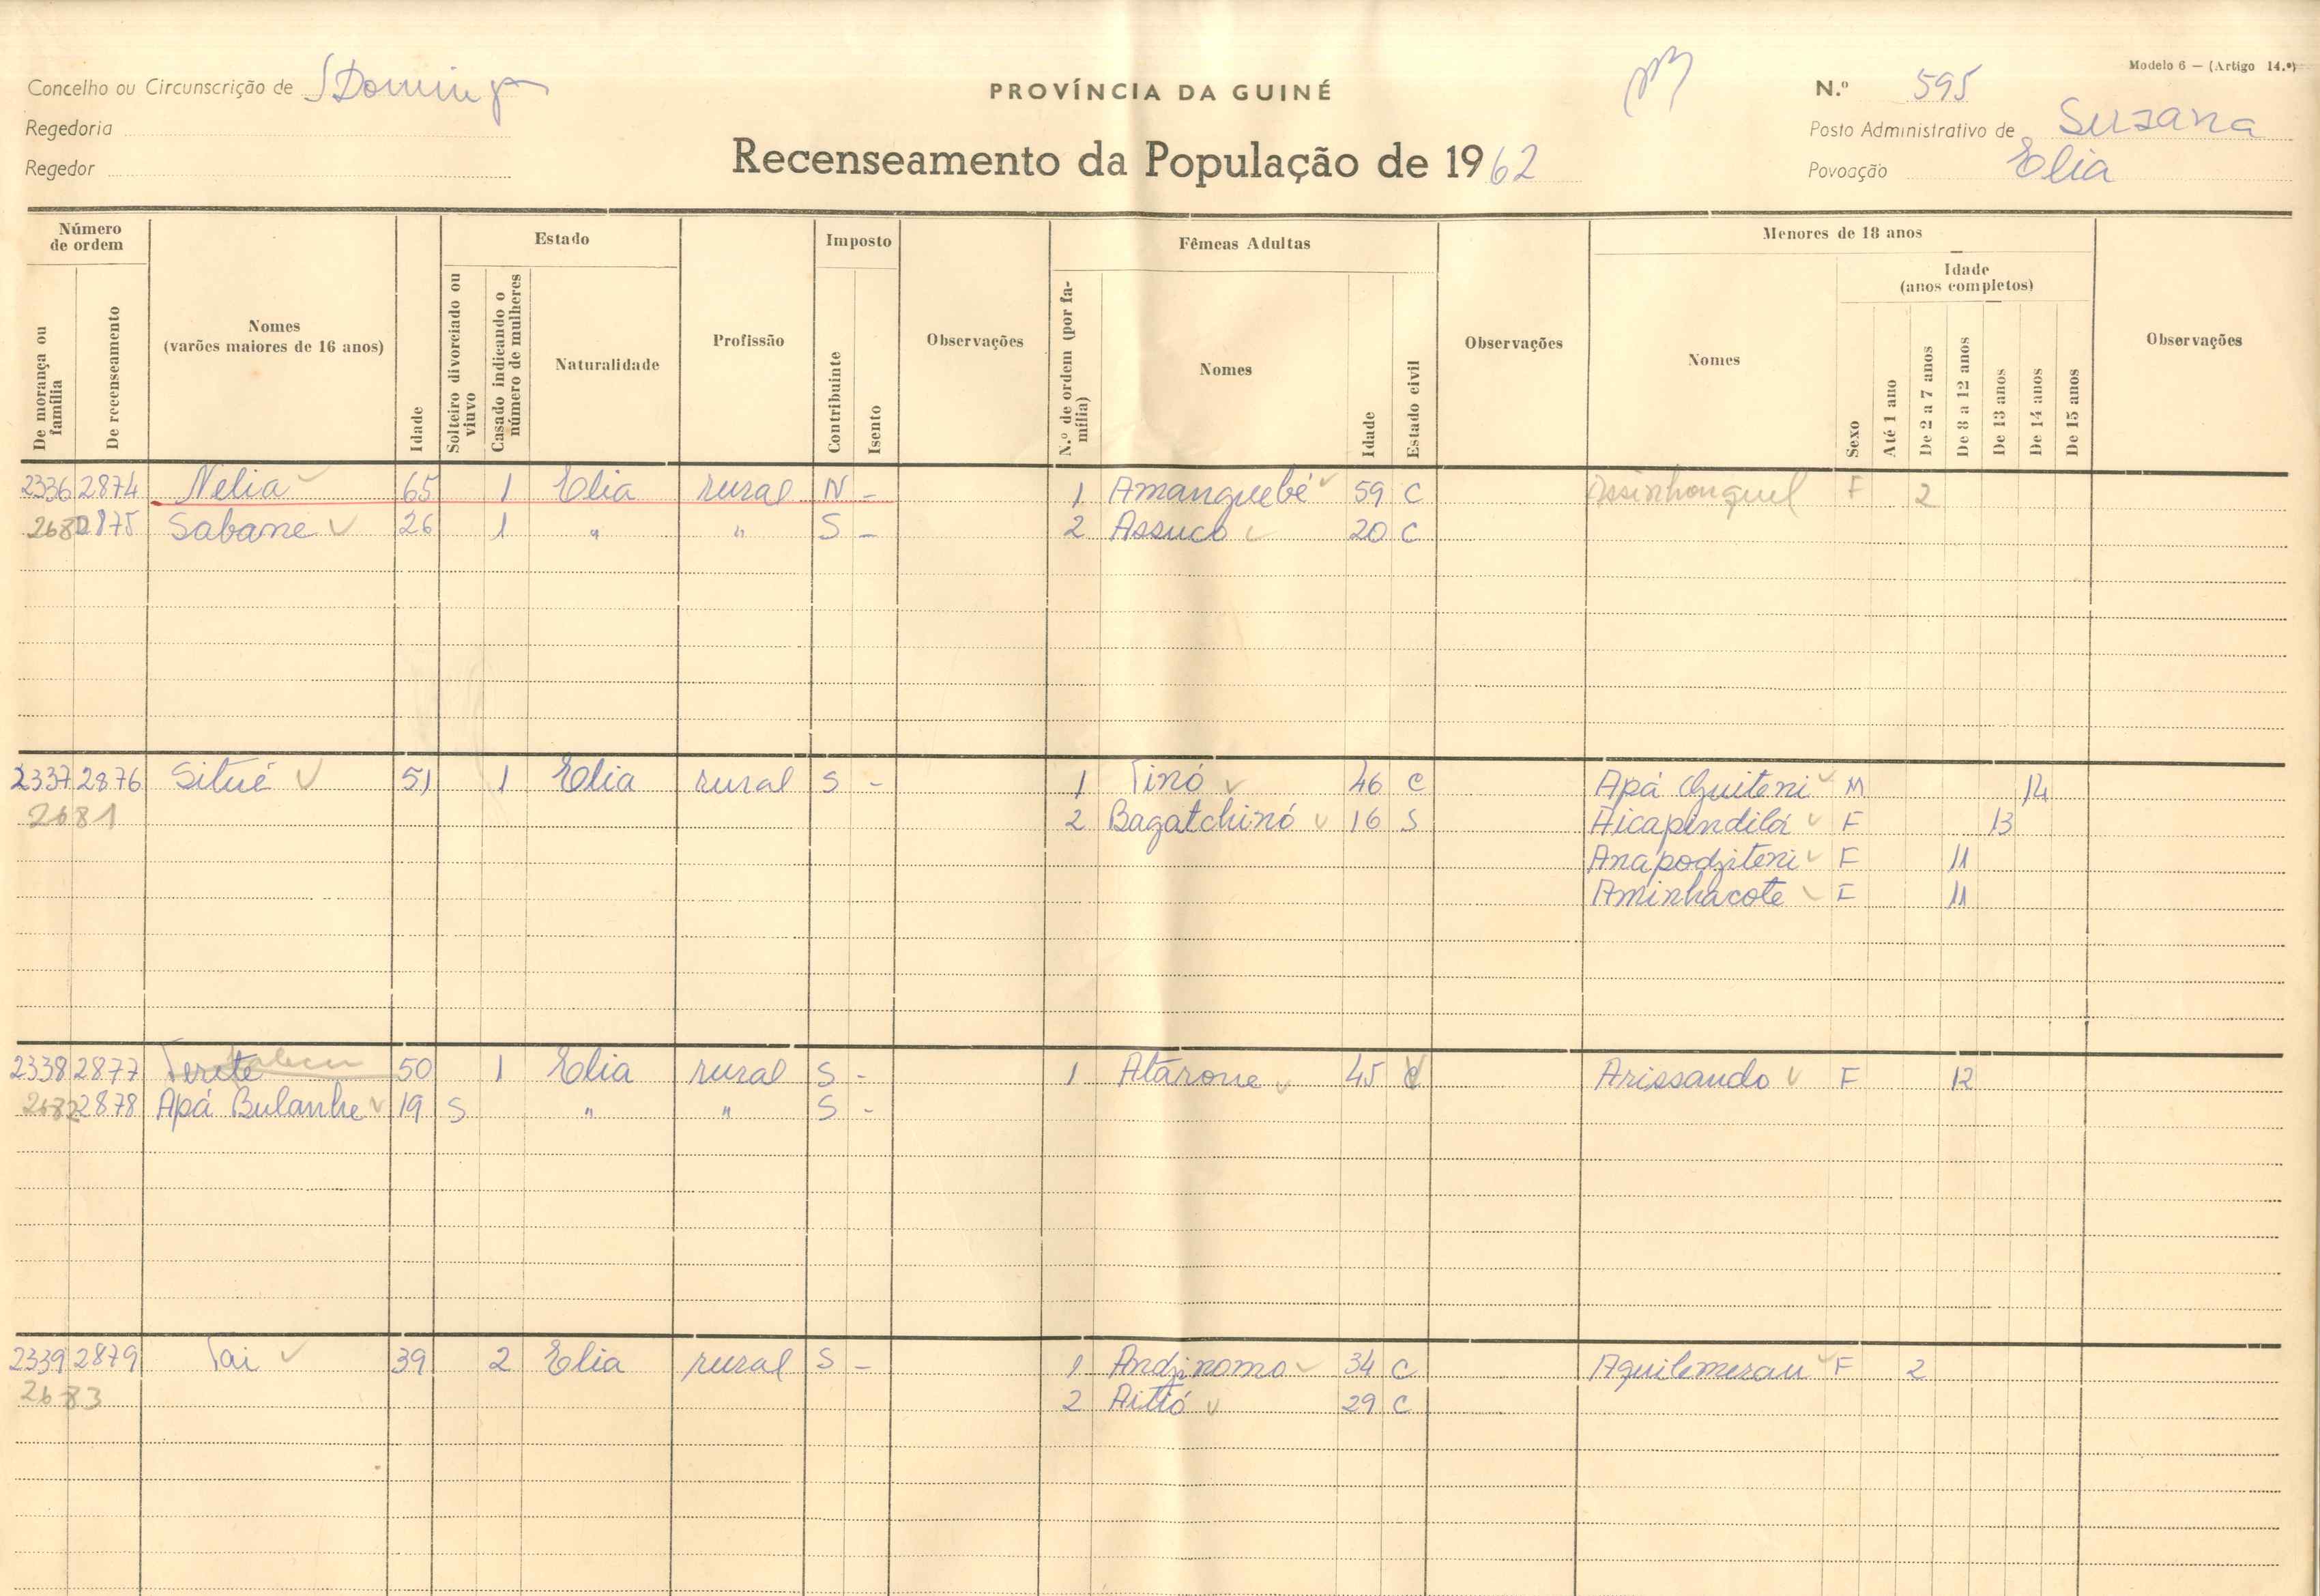 Modelo 6 — (Artigo 14.º)
Concelho ou Circunscrição de S Domingos
PROVÍNCIA DA GUINÉ
N.º 595
Regedoria
Posto Administrativo de Suzana
Regedor
Recenseamento da População de 1962
Povoação Elia
Número de ordem
Estado
Imposto
Fêmeas Adultas
Menores de 18 anos
Idade (anos completos)
De morança ou família
De recenseamento
Nomes (varões maiores de 16 anos)
Idade
Solteiro divorciado ou viuvo
Casado indicando o número de mulheres
Naturalidade
Profissão
Contribuinte
Isento
Observações
N.º de ordem (por família)
Nomes
Idade
Estado civil
Observações
Nomes
Sexo
Até 1 ano
De 2 a 7 anos
De 8 a 12 anos
De 13 anos
De 14 anos
De 15 anos
Observações
2336 2874 Nelia 65 1 Elia rural N - 1 Amanguebé 59 C Assinhonguel F 2
2680 2875 Sabane 26 1 " " S - 2 Assuco 20 C
2337 2876 Situé 51 1 Elia rural S - 1 Tinó 46 C Apá Guiteni M 14
2681 2 Bagatchinó 16 S Aicapendilá F 13
Anapodziteni F 11
Aminhacote F 11
2338 2877 Tereté 50 1 Elia rural S - 1 Atarone 45 Arissando F 12
2682 2878 Apá Bulanhe 19 S " " S -
2339 2879 Tai 39 2 Elia rural S - 1 Andzinomo 34 C Aquilemerau F 2
2683 2 Aitió 29 C